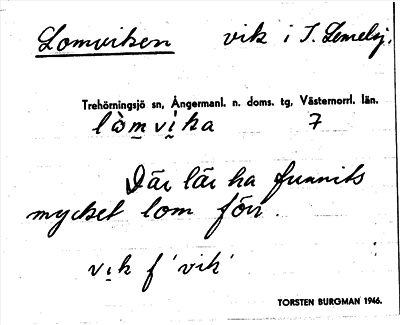 Lomviken vik i T. Lemelsj.
Trehörningsjö sn, Ångermanl. n. doms. tg, Västernorrl. län.
lò̀m̱ vi̱ka 7
Där lär ha funnits
mycket lom förr.
vi̱k f 'vik'
TORSTEN BURGMAN 1946.